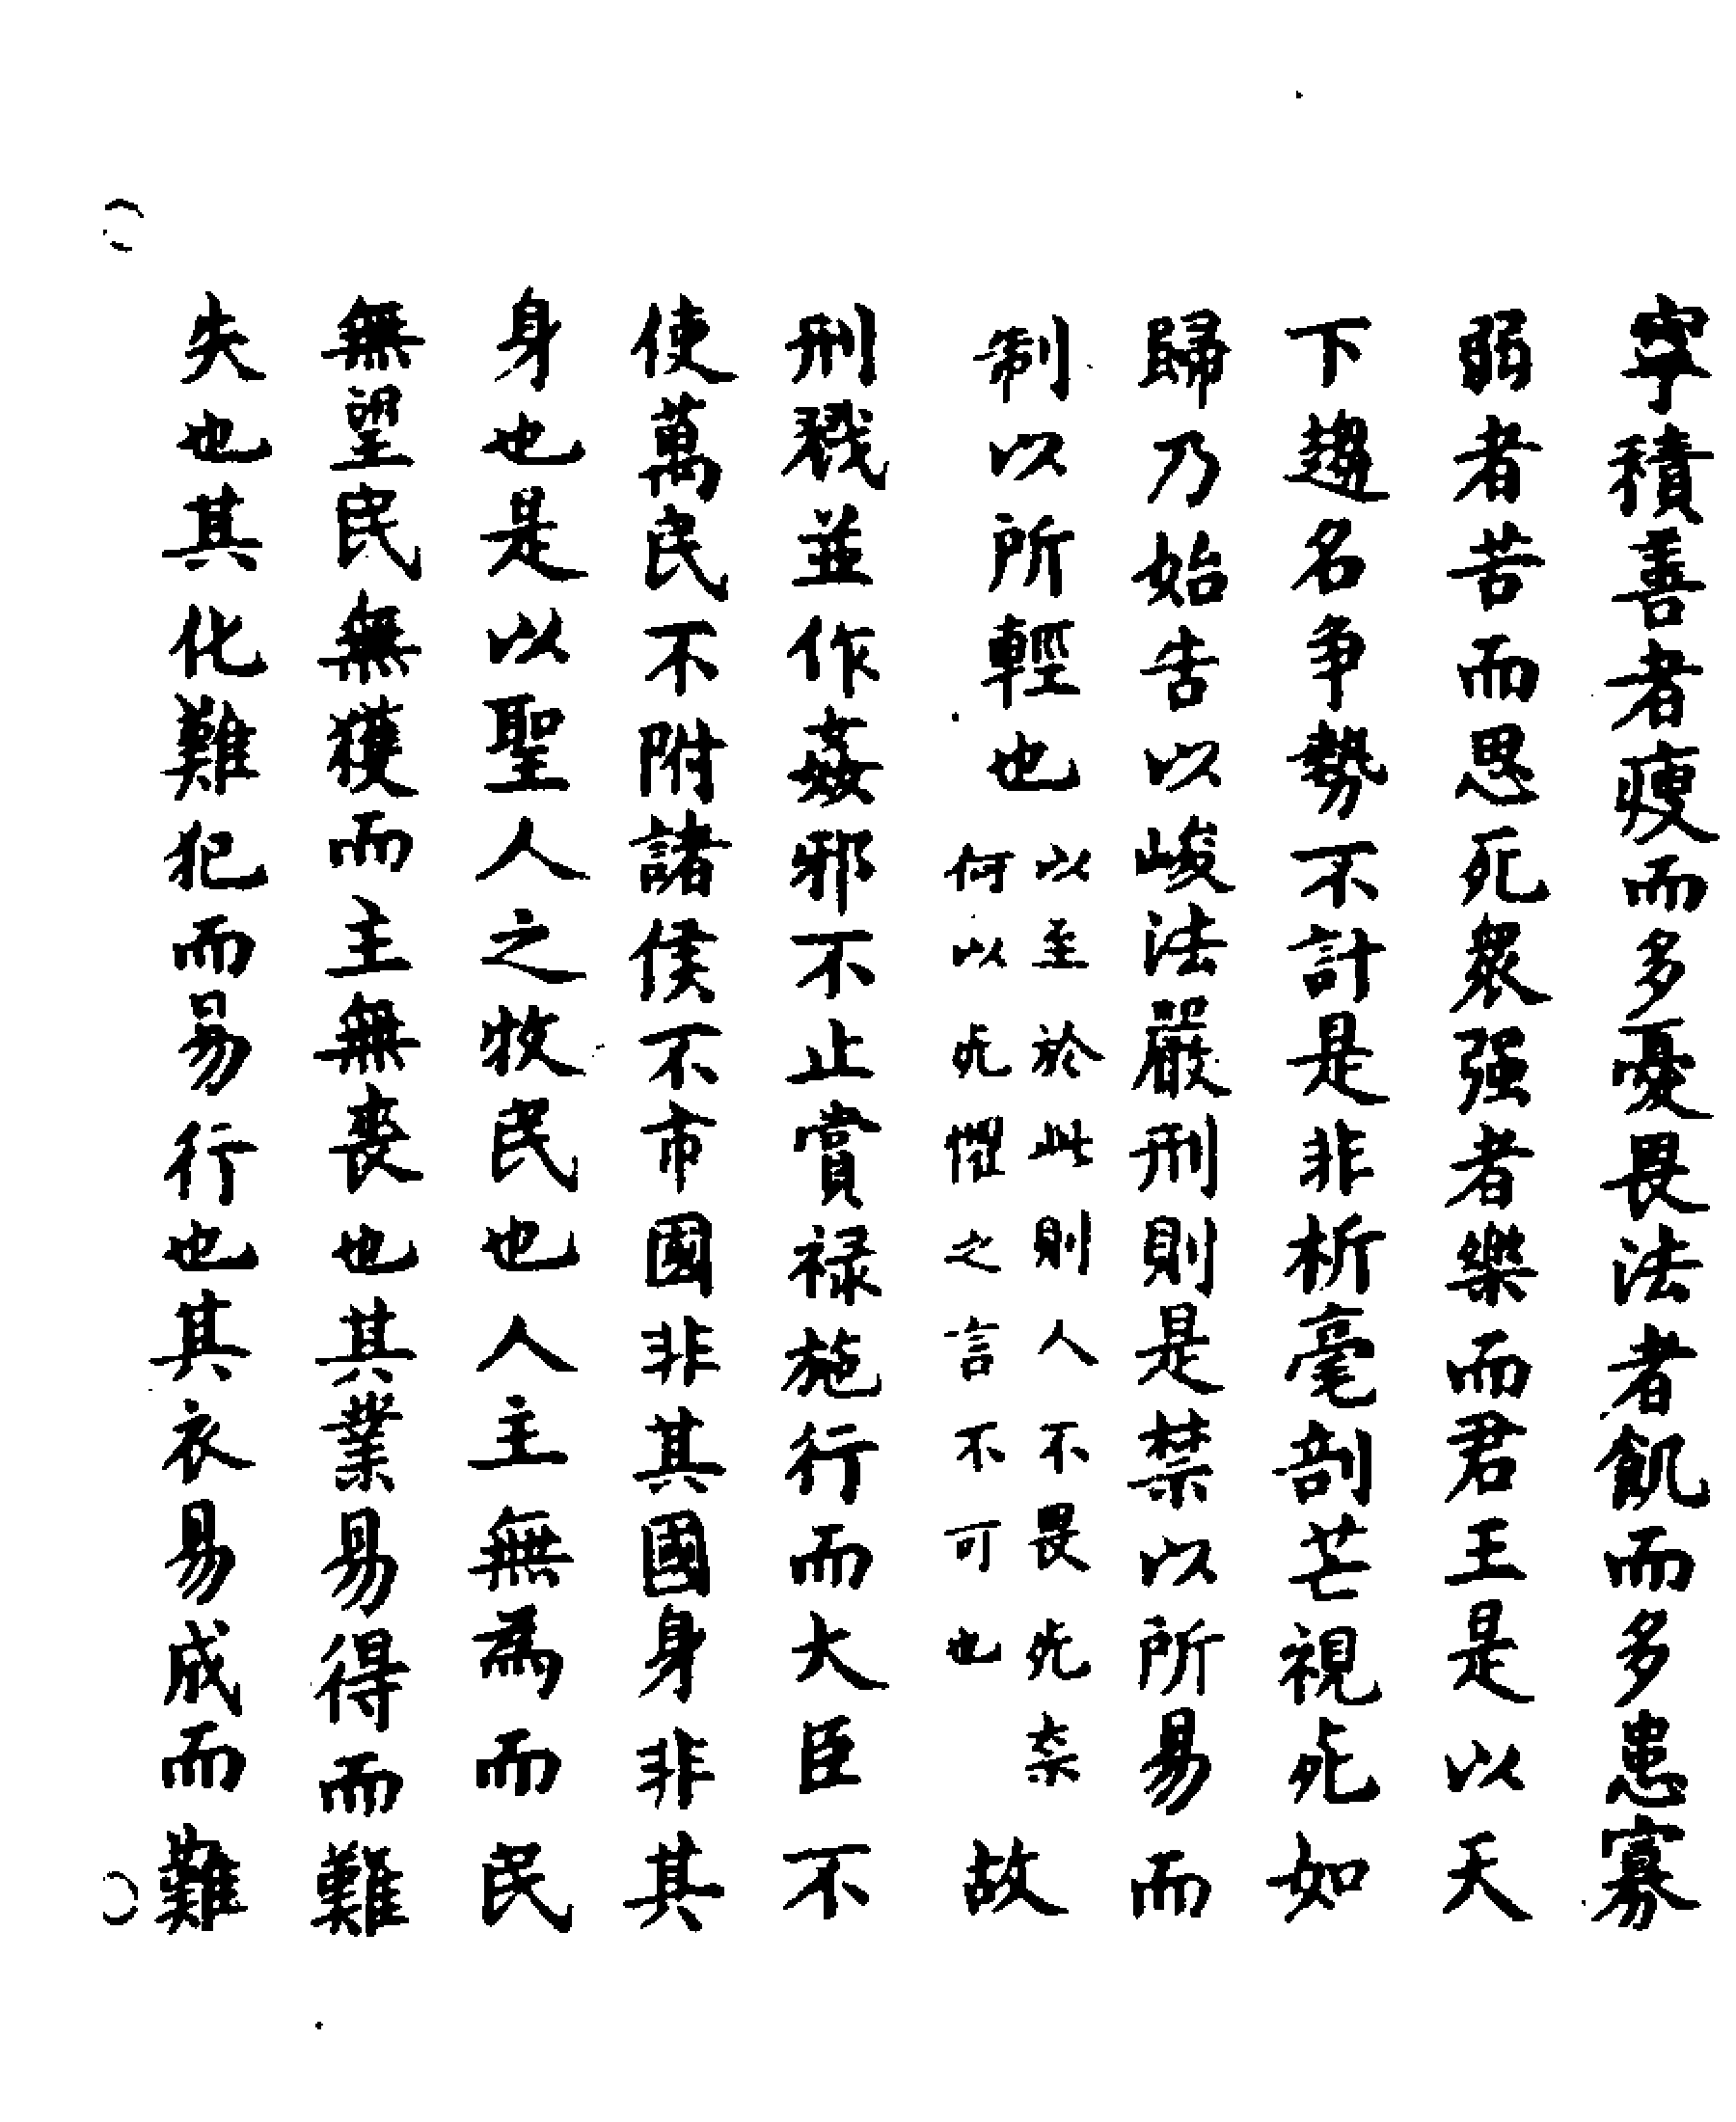 寜積善者瘦而多憂畏法者飢而多患寡
弱者苦而思死衆强者樂而君王是以天
下趨名争勢不計是非析毫剖芒視死如
歸乃始告以峻法嚴刑則是禁以所易而
制以所輕也以至於此則人不畏死柰何以死懼之言不可也故
刑戮並作姦邪不止賞禄施行而大臣不
使萬民不附諸侯不市國非其國身非其
身也是以聖人之牧民也人主無為而民
無望民無獲而主無喪也其業易得而難
失也其化難犯而易行也其衣易成而難